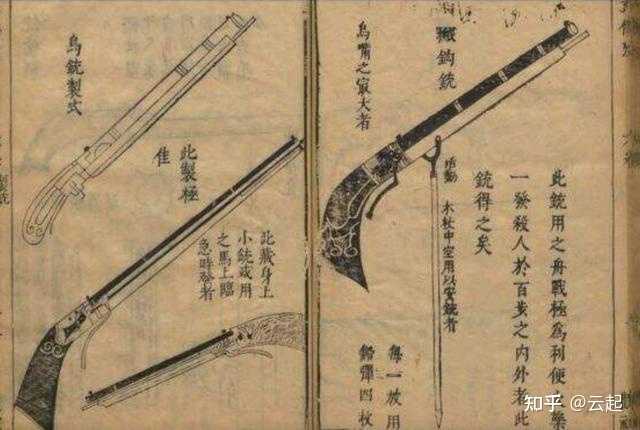 此銃用之舟戰極為利便之
一發殺人於百步之内外者此
銃得之矣
鈎銃
木杖中空用以安銃者
每一放用
鉛彈四枚
鳥嘴之㝡大者
此藏身上
小銃或用
之馬上臨
急時發者
此製極
佳
鳥銃製式
知乎 @云起